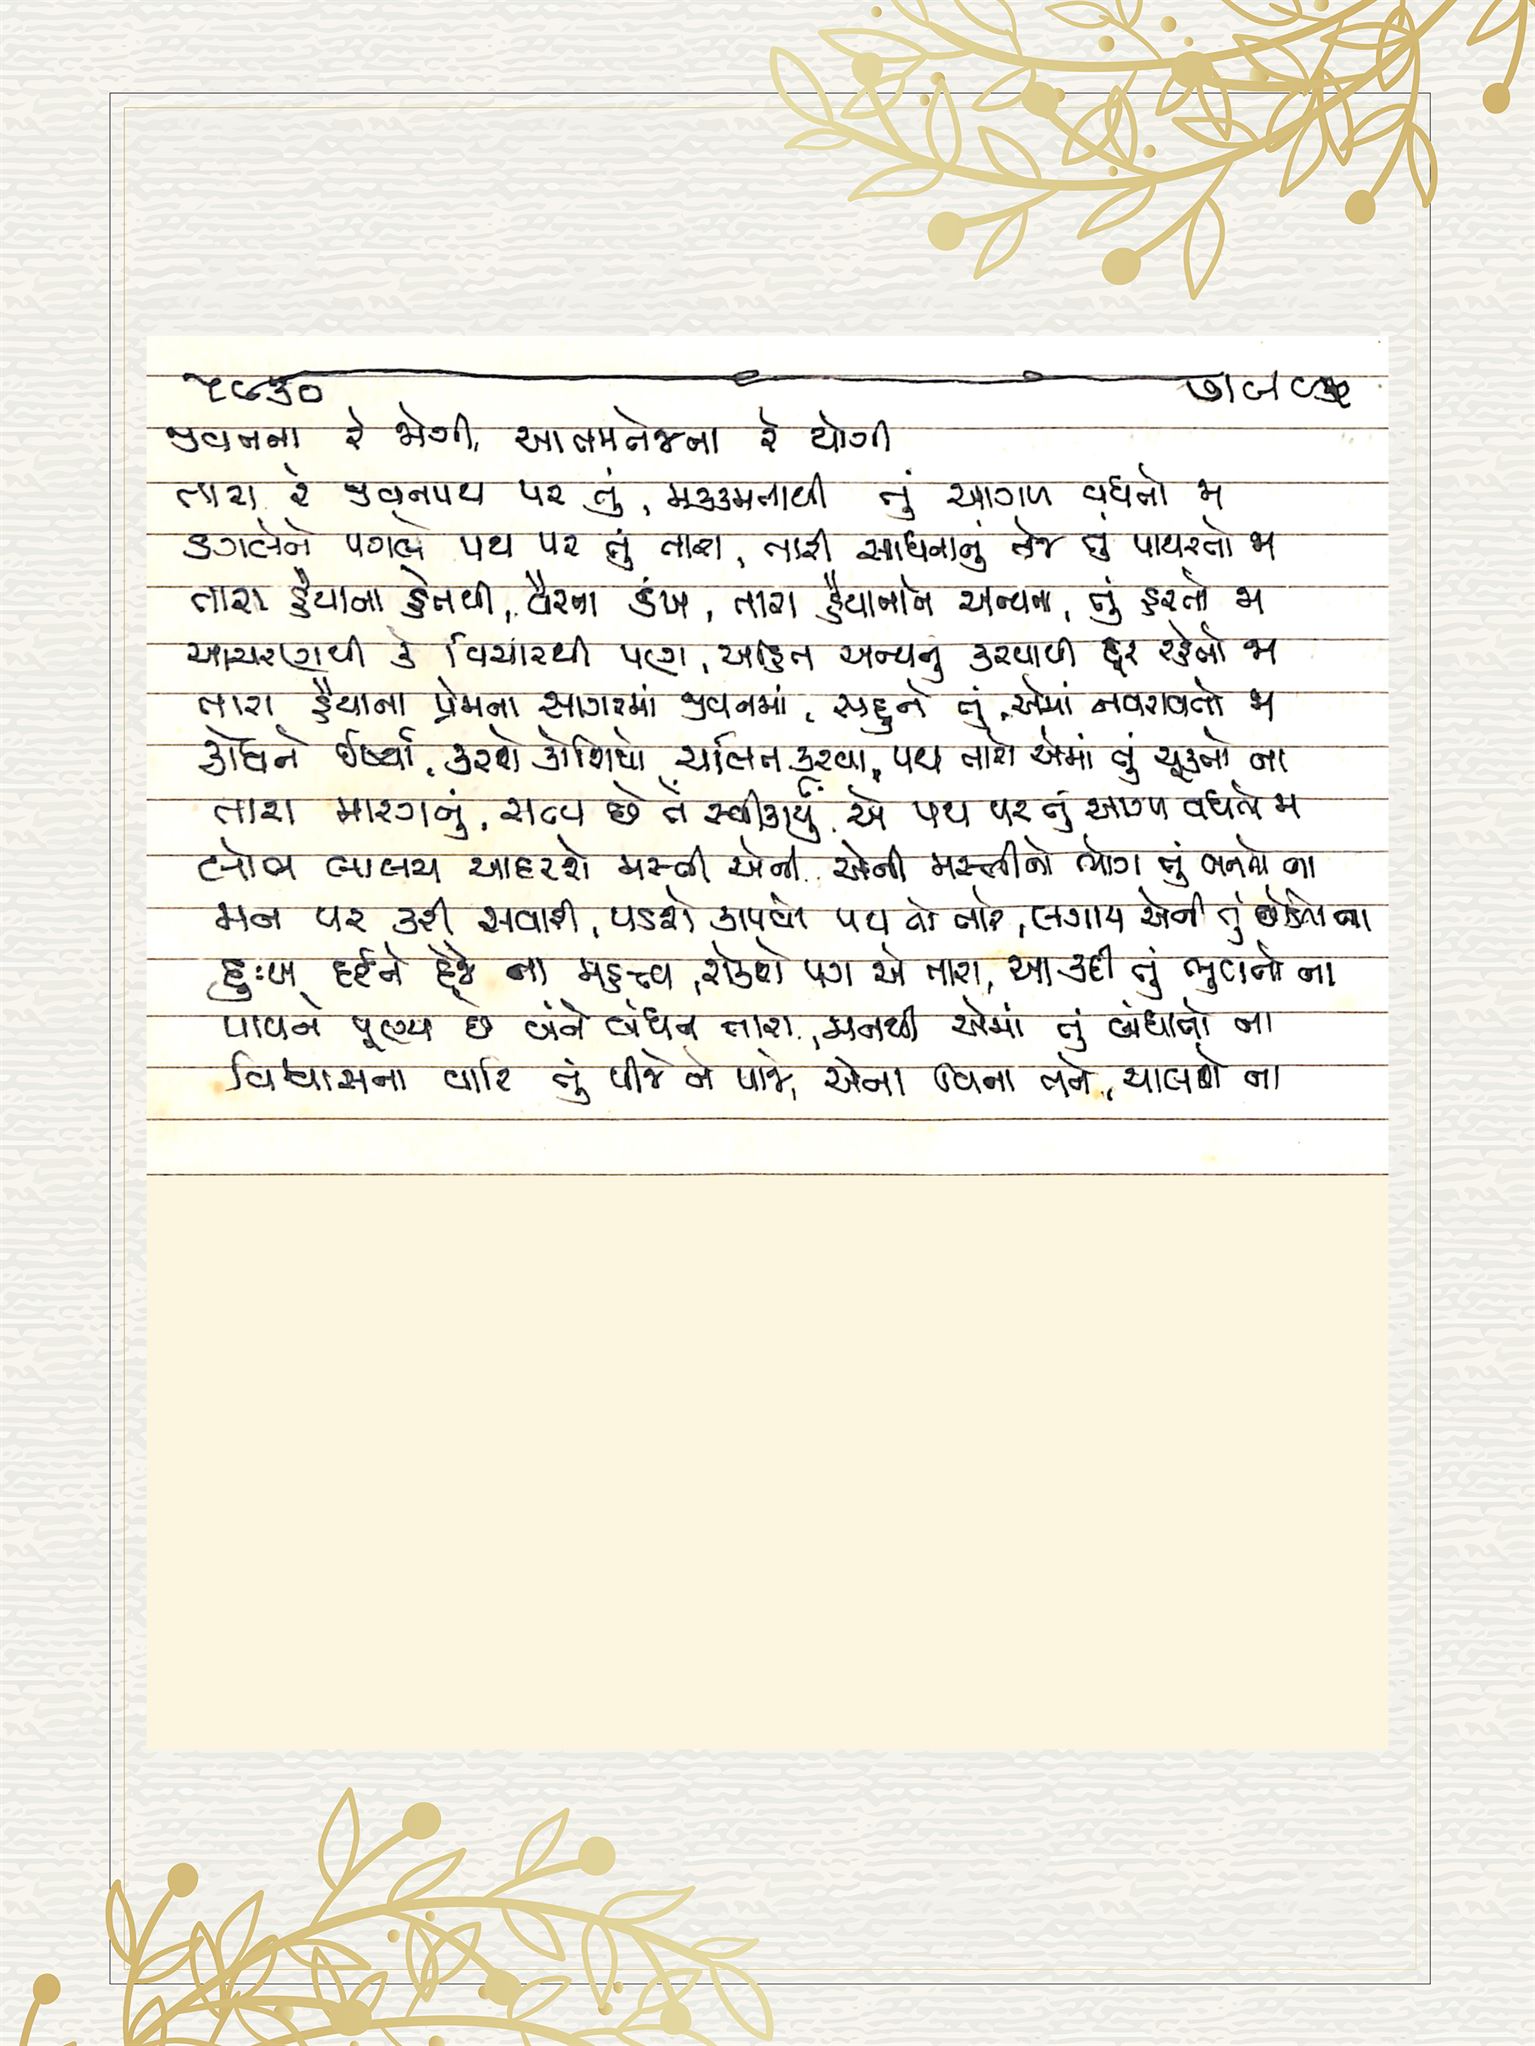 ૫૮૩૦
જીવનના રે ભોગી, આતમતેજના રે યોગી
તારા રે જીવનપથ પર તું, મક્કમતાથી તું આગળ વધતો જા
ડગલેને પગલે પથ પર તું તારા, તારી સાધનાનું તેજ તું પાથરતો જા
તારા હૈયાના હેતથી, વૈરના ડંખ, તારા હૈયાનાને અન્યના, તું હરતો જા
આચરણથી કે વિચારથી પણ, અહિત અન્યનું કરવાથી દૂર રહેતો જા
તારા હૈયાના પ્રેમના સાગરમાં જીવનમાં, સહુને તું, એમાં નવરાવતો જા
ક્રોધને ઈર્ષ્યા, કરશે કોશિશો ચલિત કરવા, પથ તારો એમાં તું ચૂકતો ના
તારા મારગનું, સત્ય છે તેં સ્વીકાર્યું, એ પથ પર તું આગળ વધતો જા
લોભ લાલચ આદરશે મસ્તી એની, એની મસ્તીનો ભોગ તું બનતો ના
મન પર કરી સવારી, પડશે કાપવો પથ તો તારે, લગામ એની તું છોડતો ના
દુઃખ દર્દને દેજે ના મહત્ત્વ, રોકશે પગ એ તારા, આ કદી તું ભુલતો ના
પાપને પૂણ્ય છે બંને બંધન તારા, મનથી એમાં તું બંધાતો ના
વિશ્વાસના વારિ તું પીજે ને પાજે, એના વિના તને, ચાલશે ના